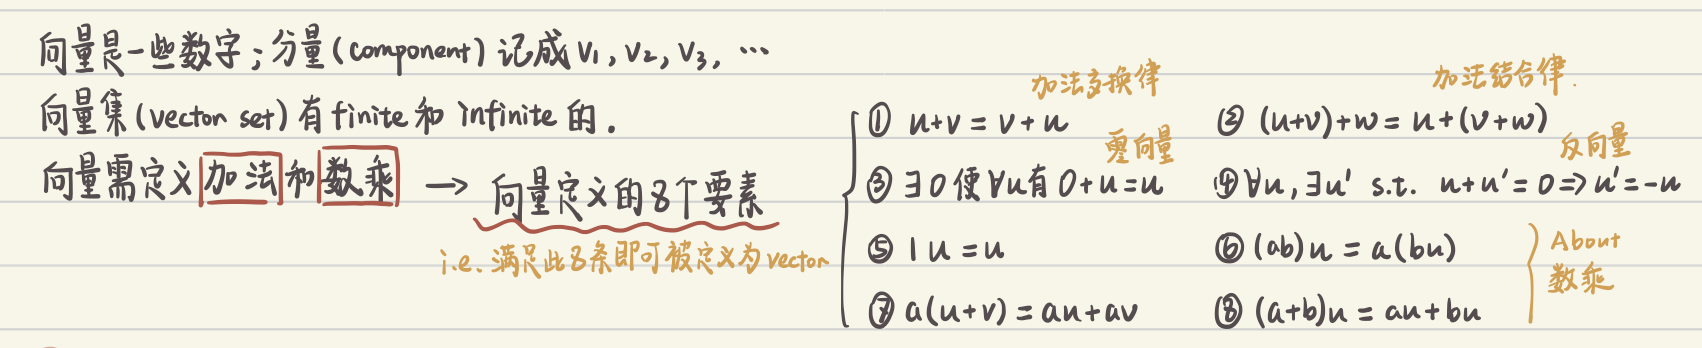 向量是一些数字；分量(component)记成v₁,v₂,v₃,…
向量集(vector set)有finite和infinite的.
向量需定义加法和数乘 → 向量定义的8个要素
i.e. 满足此8条即可被定义为vector
加法交换律
① u+v=v+u
加法结合律.
② (u+v)+w=u+(v+w)
零向量
③ ∃0使∀u有0+u=u
反向量
④ ∀u,∃u' s.t. u+u'=0⇒u'=-u
⑤ 1u=u
⑥ (ab)u=a(bu)
⑦ a(u+v)=au+av
⑧ (a+b)u=au+bu
About
数乘